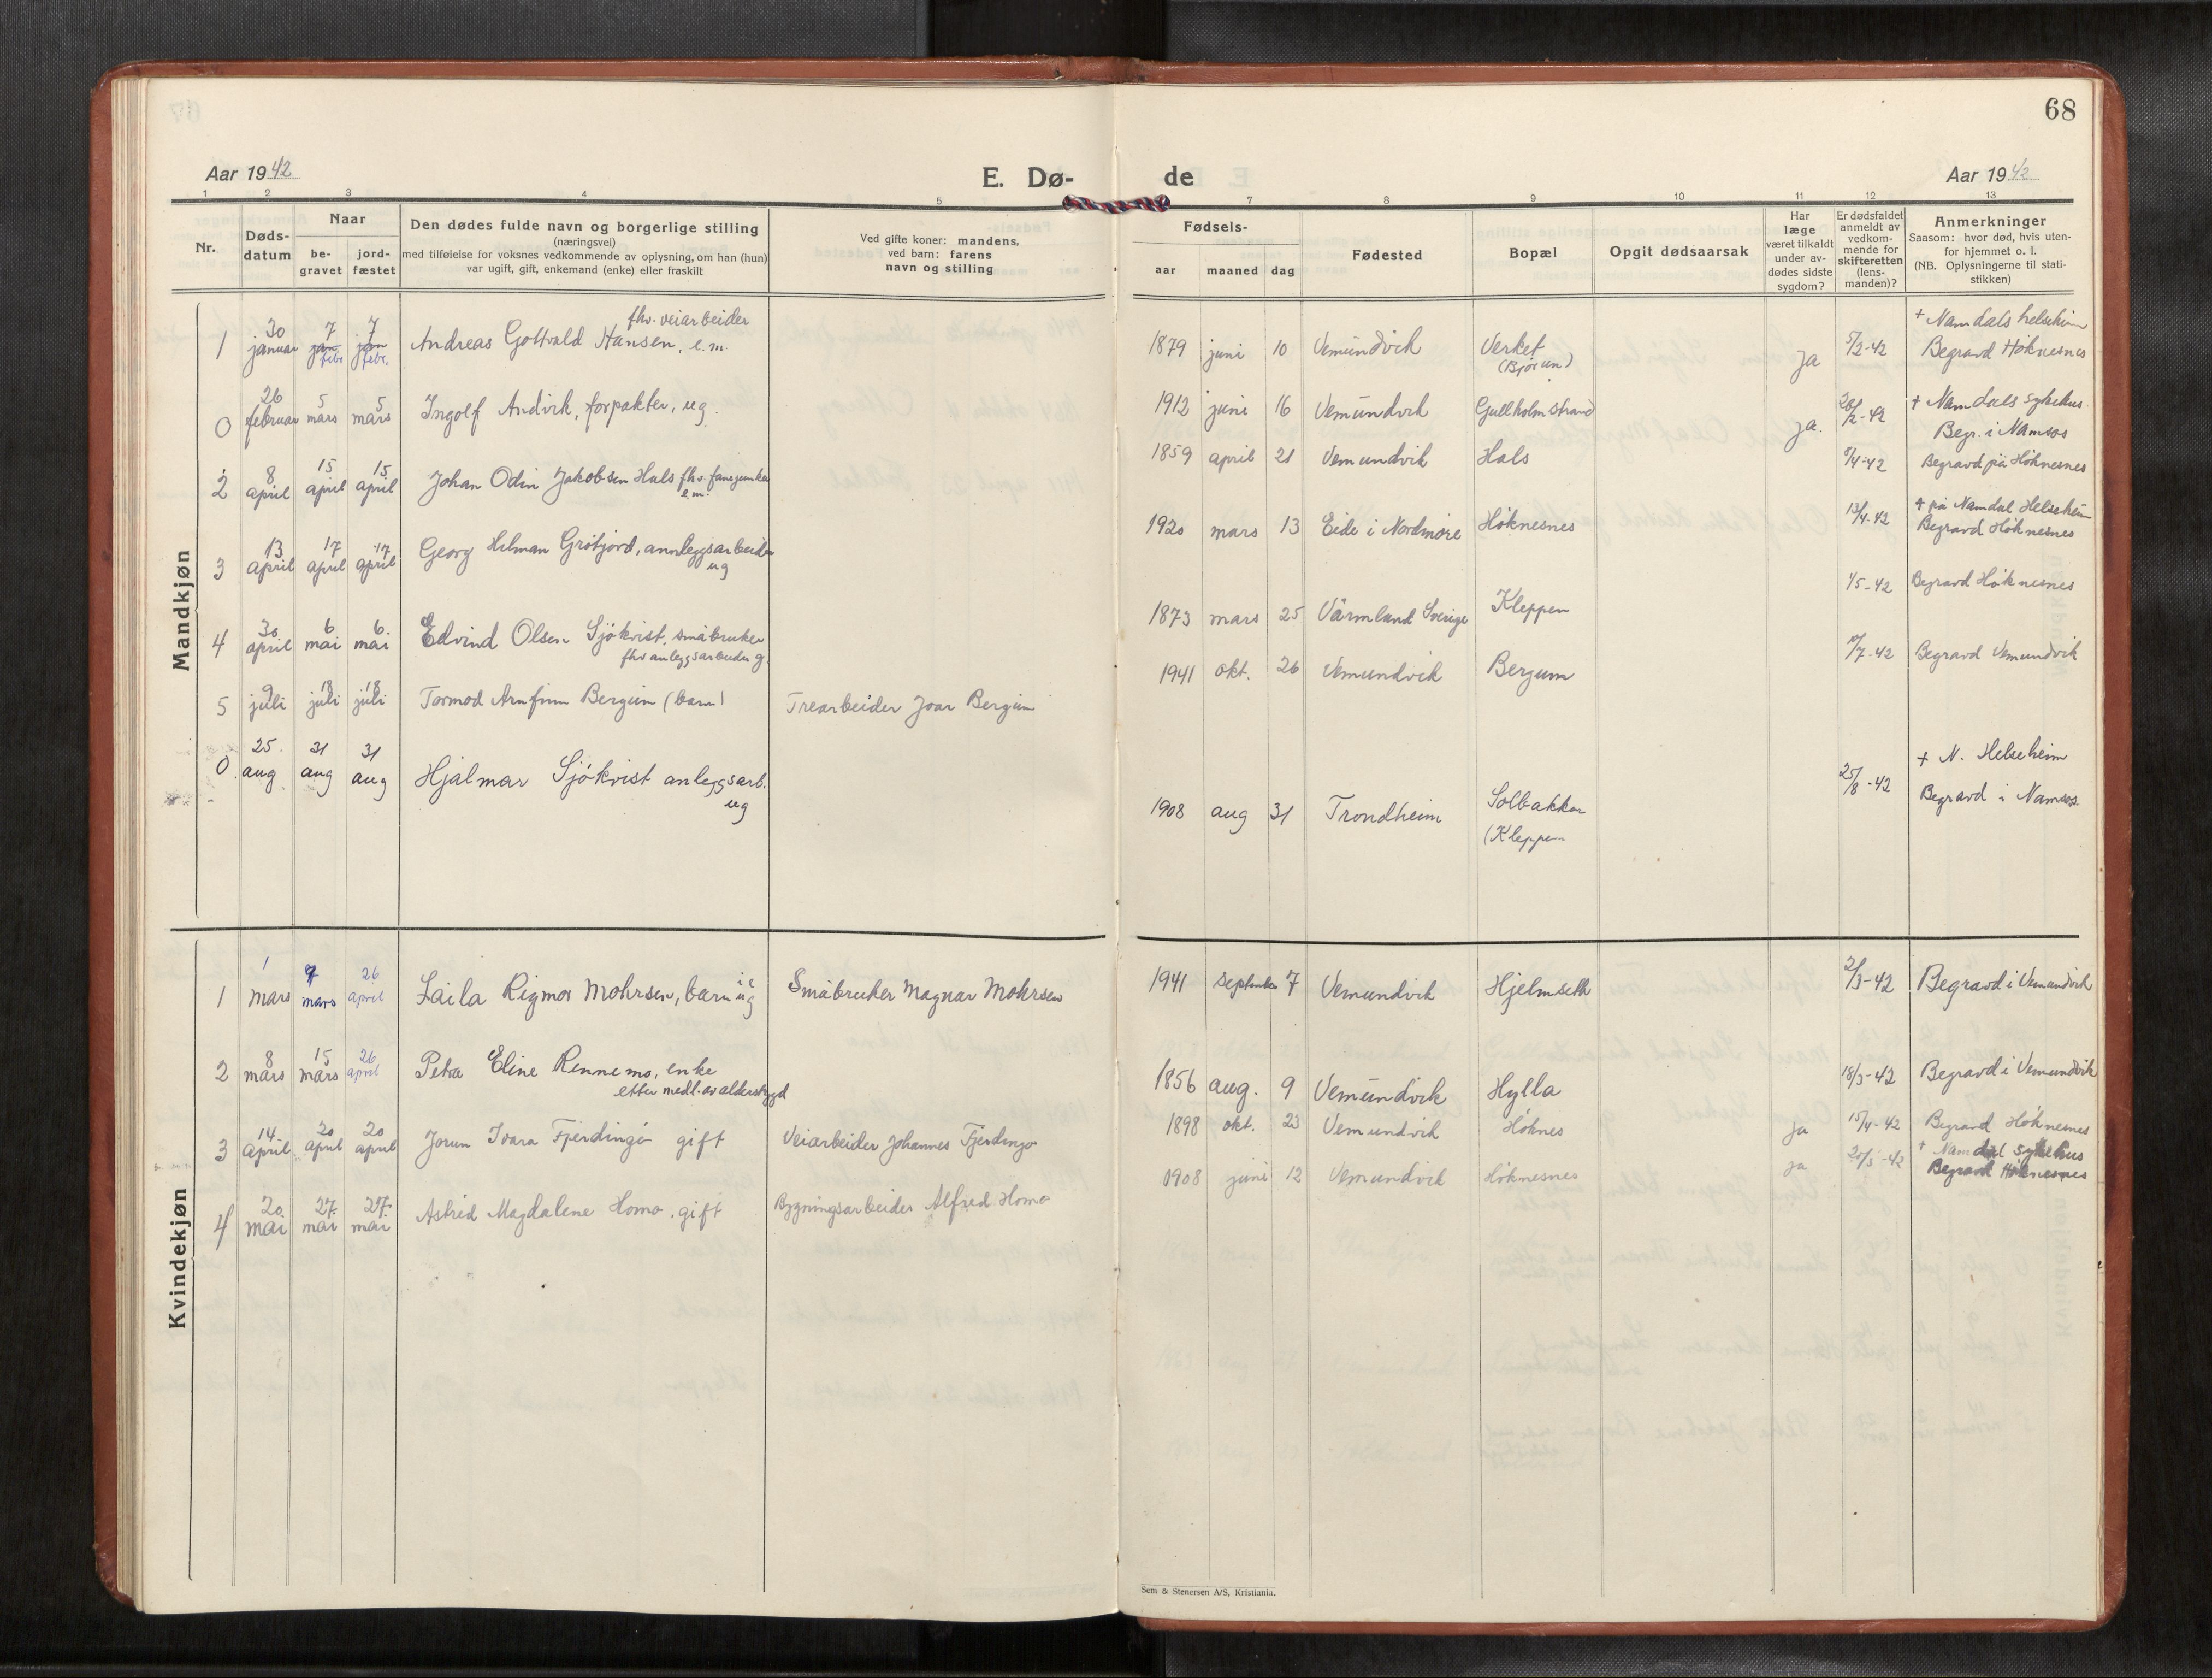 68
Aar 1942
E. Dø-
de
Aar 1942
1 2 3 4 5 7 8 9 10 11 12 13
Nr.
Døds-
datum
Naar
be-
gravet
jord-
fæstet
Den dødes fulde navn og borgerlige stilling
(næringsvei)
med tilføielse for voksnes vedkommende av oplysning, om han (hun)
var ugift, gift, enkemand (enke) eller fraskilt
Ved gifte koner: mandens,
ved barn: farens
navn og stilling
Fødsels-
aar maaned dag
Fødested
Bopæl
Opgit dødsaarsak
Har
læge
været tilkaldt
under av-
dødes sidste
sygdom?
Er dødsfaldet
anmeldt av
vedkom-
mende for
skifteretten
(lens-
manden)?
Anmerkninger
Saasom: hvor død, hvis uten-
for hjemmet o. l.
(NB. Oplysningerne til stati-
stikken)
Mandkjøn
fhv. veiarbeider
1 30 januar 7 jan febr. 7 jan febr. Andreas Gottvald Hansen, e.m. 1879 juni 10 Vemundvik Verket (Bjørum) ja 5/2-42
+ Namdals helseheim
Begravd Høknesnes
0 26 februar 5 mars 5 mars Ingolf Andvik, forpakter, ug. 1912 juni 16 Vemundvik Gullholmstrand ja. 28/2-42
+ Namdals sykehus.
Begr. i Namsos
2 8 april 15 april 15 april Johan Odin Jakobsen Hals fhv.
e.m. 1859 april 21 Vemundvik Hals 9/4-42 Begravd på Høknesnes
3 13 april 17 april 17 april Georg Helman Gråfjord, annleggsarbeider
ug 1920 mars 13 Eide i Nordmøre Høknesnes 13/4-42
+ på Namdal Helseheim
Begravd Høknesnes
4 30 april 6 mai 6 mai Edvind Olsen Sjökvist, småbruker
fhv anleggsarbeider g. 1873 mars 25 Värmland Sverige Kleppen 1/5-42 Begravd Høknesnes
5 9 juli 18 juli 18 juli Tormod Arnfinn Bergum (barn) Trearbeider Joar Bergum 1941 okt. 26 Vemundvik Bergum 10/7-42 Begravd Vemundvik
0. 25. aug 31 aug 31 aug Hjalmar Sjökvist anleggsarb.
ug 1908 aug 31 Trondheim Solbakken
(Kleppen 25/8-42
+ N. Helseheim
Begravd i Namsos.
Kvindekjøn
1 1 mars 9 mars 26 april Laila Rigmor Mohrsen, barn ug Småbruker Magnar Mohrsen 1941 september 7 Vemundvik Hjelmseth 2/3-42 Begravd i Vemundvik
2 8 mars 15 mars 26 april Petra Eline Rennemo, enke
etter medl. av alderstrygd 1856 aug. 9 Vemundvik Hylla 18/3-42 Begravd i Vemundvik
3 14 april 20 april 20 april Jorun Ivara Fjerdingø gift Veiarbeider Johannes Fjerdingø 1898 okt. 23 Vemundvik Høknes ja 15/4-42 Begravd Høknesnes
4 20 mai 27. mai 27. mai Astrid Magdalene Homo, gift Bygningsarbeider Alfred Homo 1908 juni 12 Vemundvik Høknesnes ja 21/5-42
+ Namdal Sykehus
Begravd Høknesnes
Sem & Stenersen A/S, Kristiania.